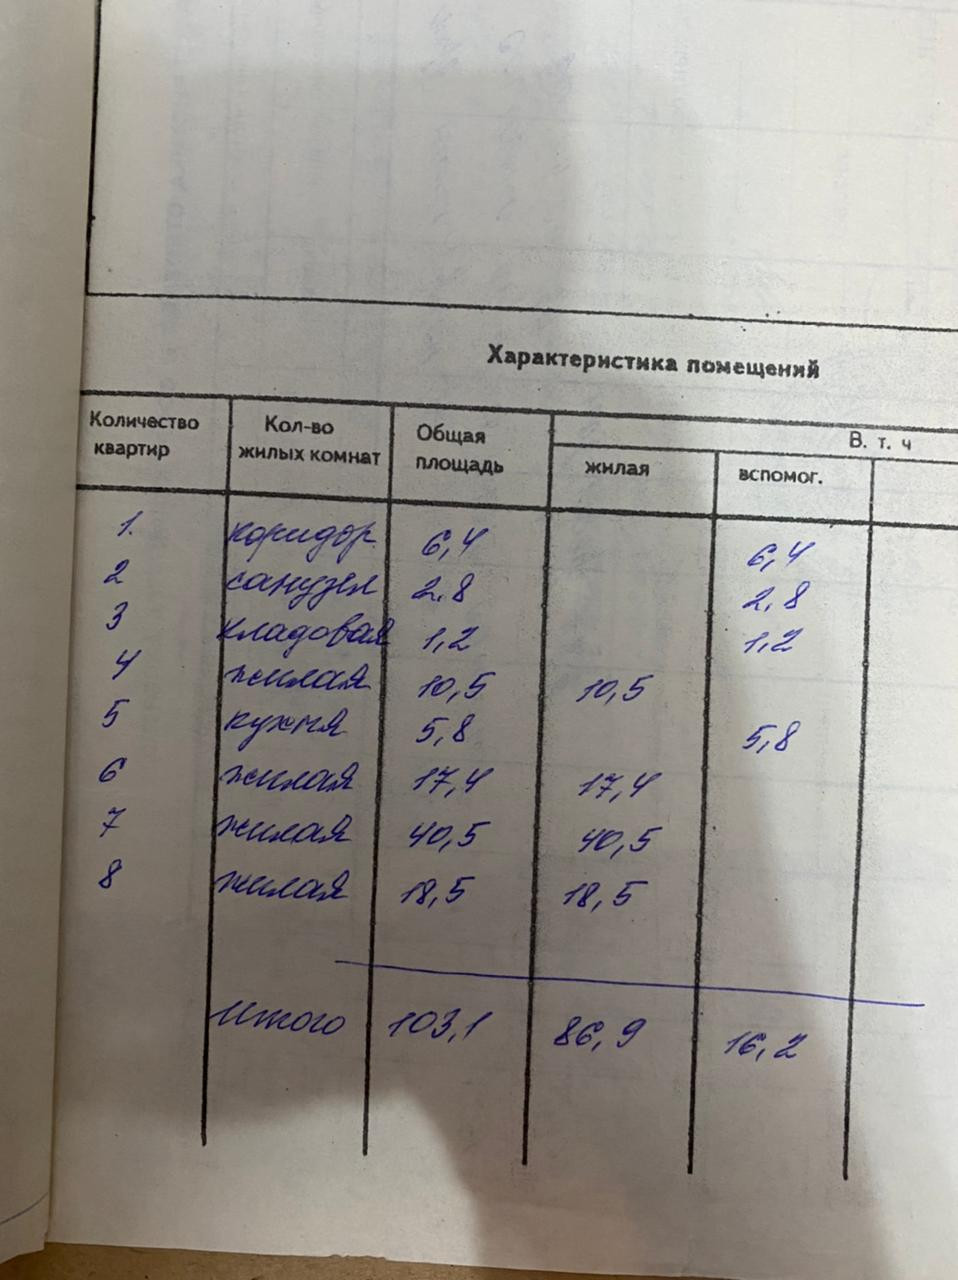 Характеристика помещений
Количество квартир Кол-во жилых комнат Общая площадь В. т. ч
жилая вспомог.
1. коридор 6,4 6,4
2 санузел 2,8 2,8
3 кладовая 1,2 1,2
4 жилая 10,5 10,5
5 кухня 5,8 5,8
6 жилая 17,4 17,4
7 жилая 40,5 40,5
8 жилая 18,5 18,5
Итого 103,1 86,9 16,2